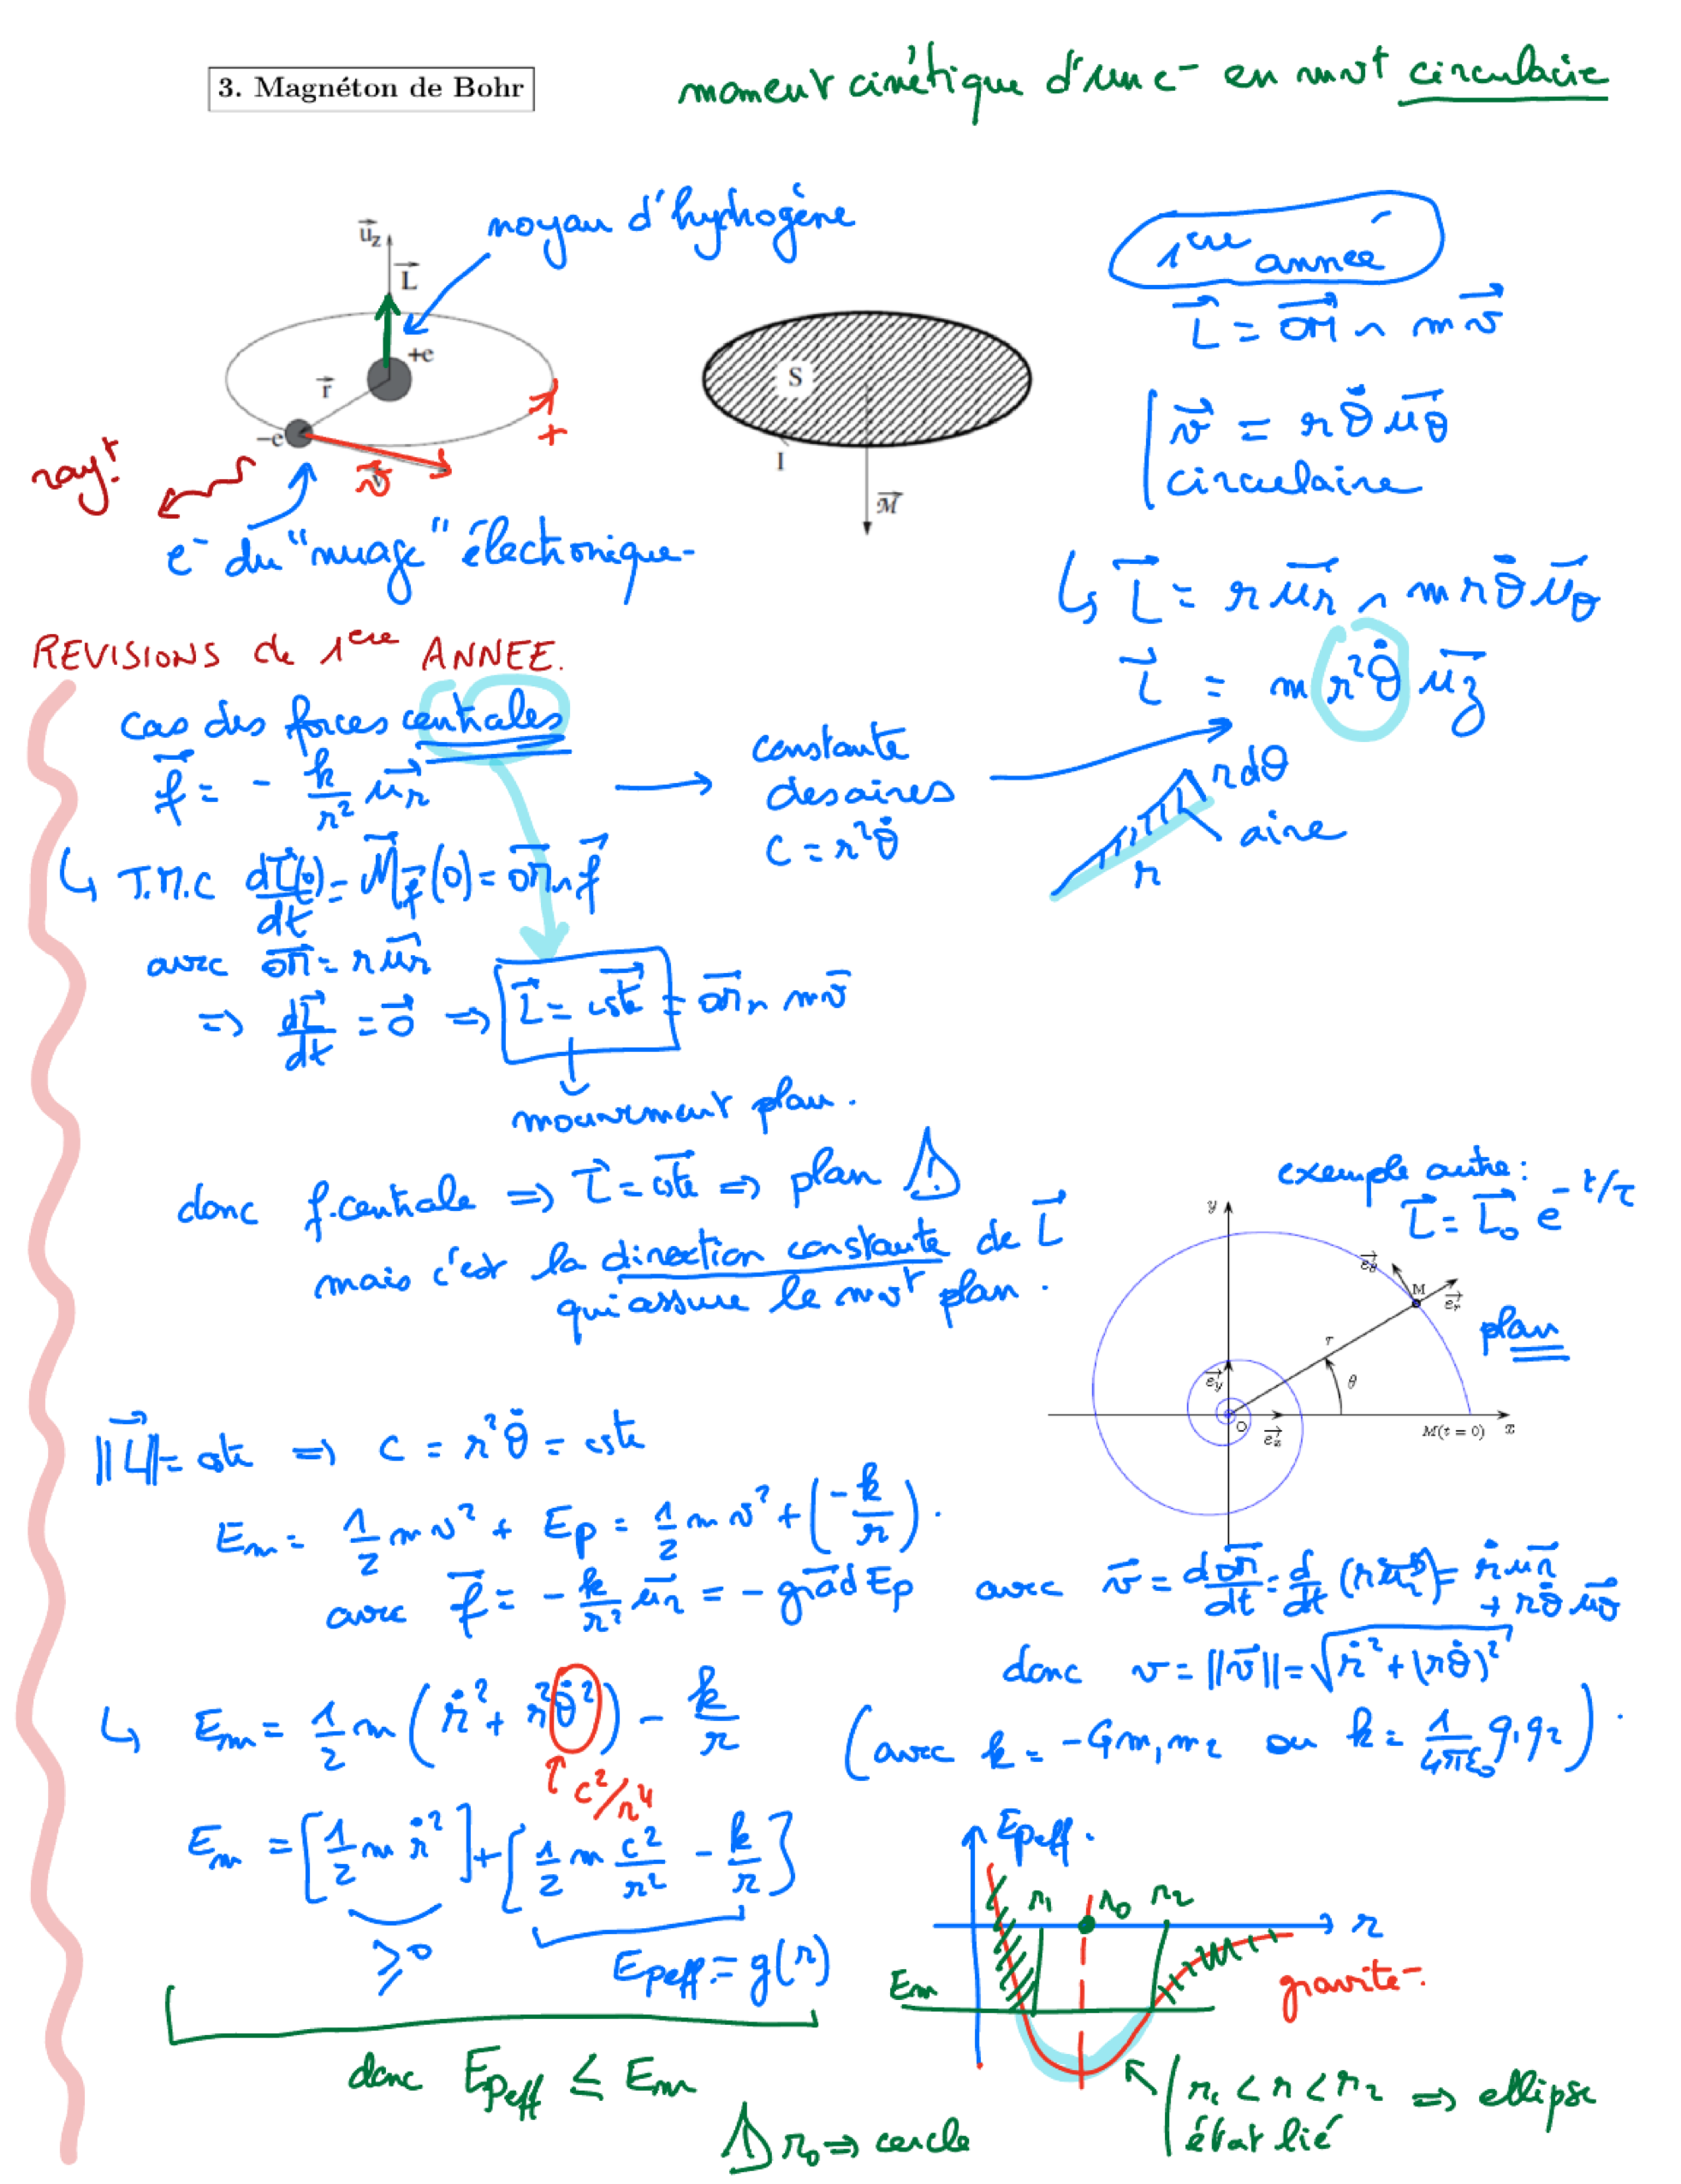 3. Magnéton de Bohr
moment cinétique d'un e⁻ en mvt circulaire
noyau d'hydrogène
u⃗z
L⃗
+e
r⃗
-e
v⃗
+
rayt
e⁻ du "nuage" électronique
S
I
M⃗
1ère année
L⃗ = OM⃗ ∧ m v⃗
v⃗ = r θ̇ u⃗θ
circulaire
↳ L⃗ = r u⃗r ∧ m r θ̇ u⃗θ
L⃗ = m r² θ̇ u⃗z
REVISIONS de 1ère ANNEE.
cas des forces centrales
f⃗ = - k/r² u⃗r → constante des aires C = r² θ̇
r dθ
aire
r
↳ T.M.C dL⃗(0)/dt = M⃗f⃗(0) = OM⃗ ∧ f⃗
avec OM⃗ = r u⃗r
=> dL⃗/dt = 0⃗ => L⃗ = cste⃗ = OM⃗ ∧ m v⃗
mouvement plan.
donc f. centrale => L⃗ = cste⃗ => plan ⚠
mais c'est la direction constante de L⃗
qui assure le mvt plan.
exemple autre :
L⃗ = L⃗₀ e^(-t/τ)
y
e⃗θ
M
e⃗r
plan
r
e⃗y
θ
O
e⃗x
M(t = 0)
x
||L⃗|| = cste => C = r² θ̇ = cste
Em = 1/2 m v² + Ep = 1/2 m v² + (-k/r).
avec f⃗ = - k/r² u⃗r = - grad⃗ Ep avec v⃗ = dOM⃗/dt = d/dt (r u⃗r) = ṙ u⃗r + r θ̇ u⃗θ
donc v = ||v⃗|| = √(ṙ² + (r θ̇)²)
↳ Em = 1/2 m (ṙ² + r² θ̇²) - k/r
(avec k = -G m₁ m₂ ou k = 1/4πε₀ q₁ q₂).
↑ C²/r⁴
Em = [1/2 m ṙ²] + [1/2 m C²/r² - k/r]
≥ 0
Epeff = g(r)
donc Epeff ≤ Em
Epeff.
r₁ r₀ r₂
r
Em
gravité
r₁ < r < r₂ => ellipse
état lié
⚠ r₀ => cercle